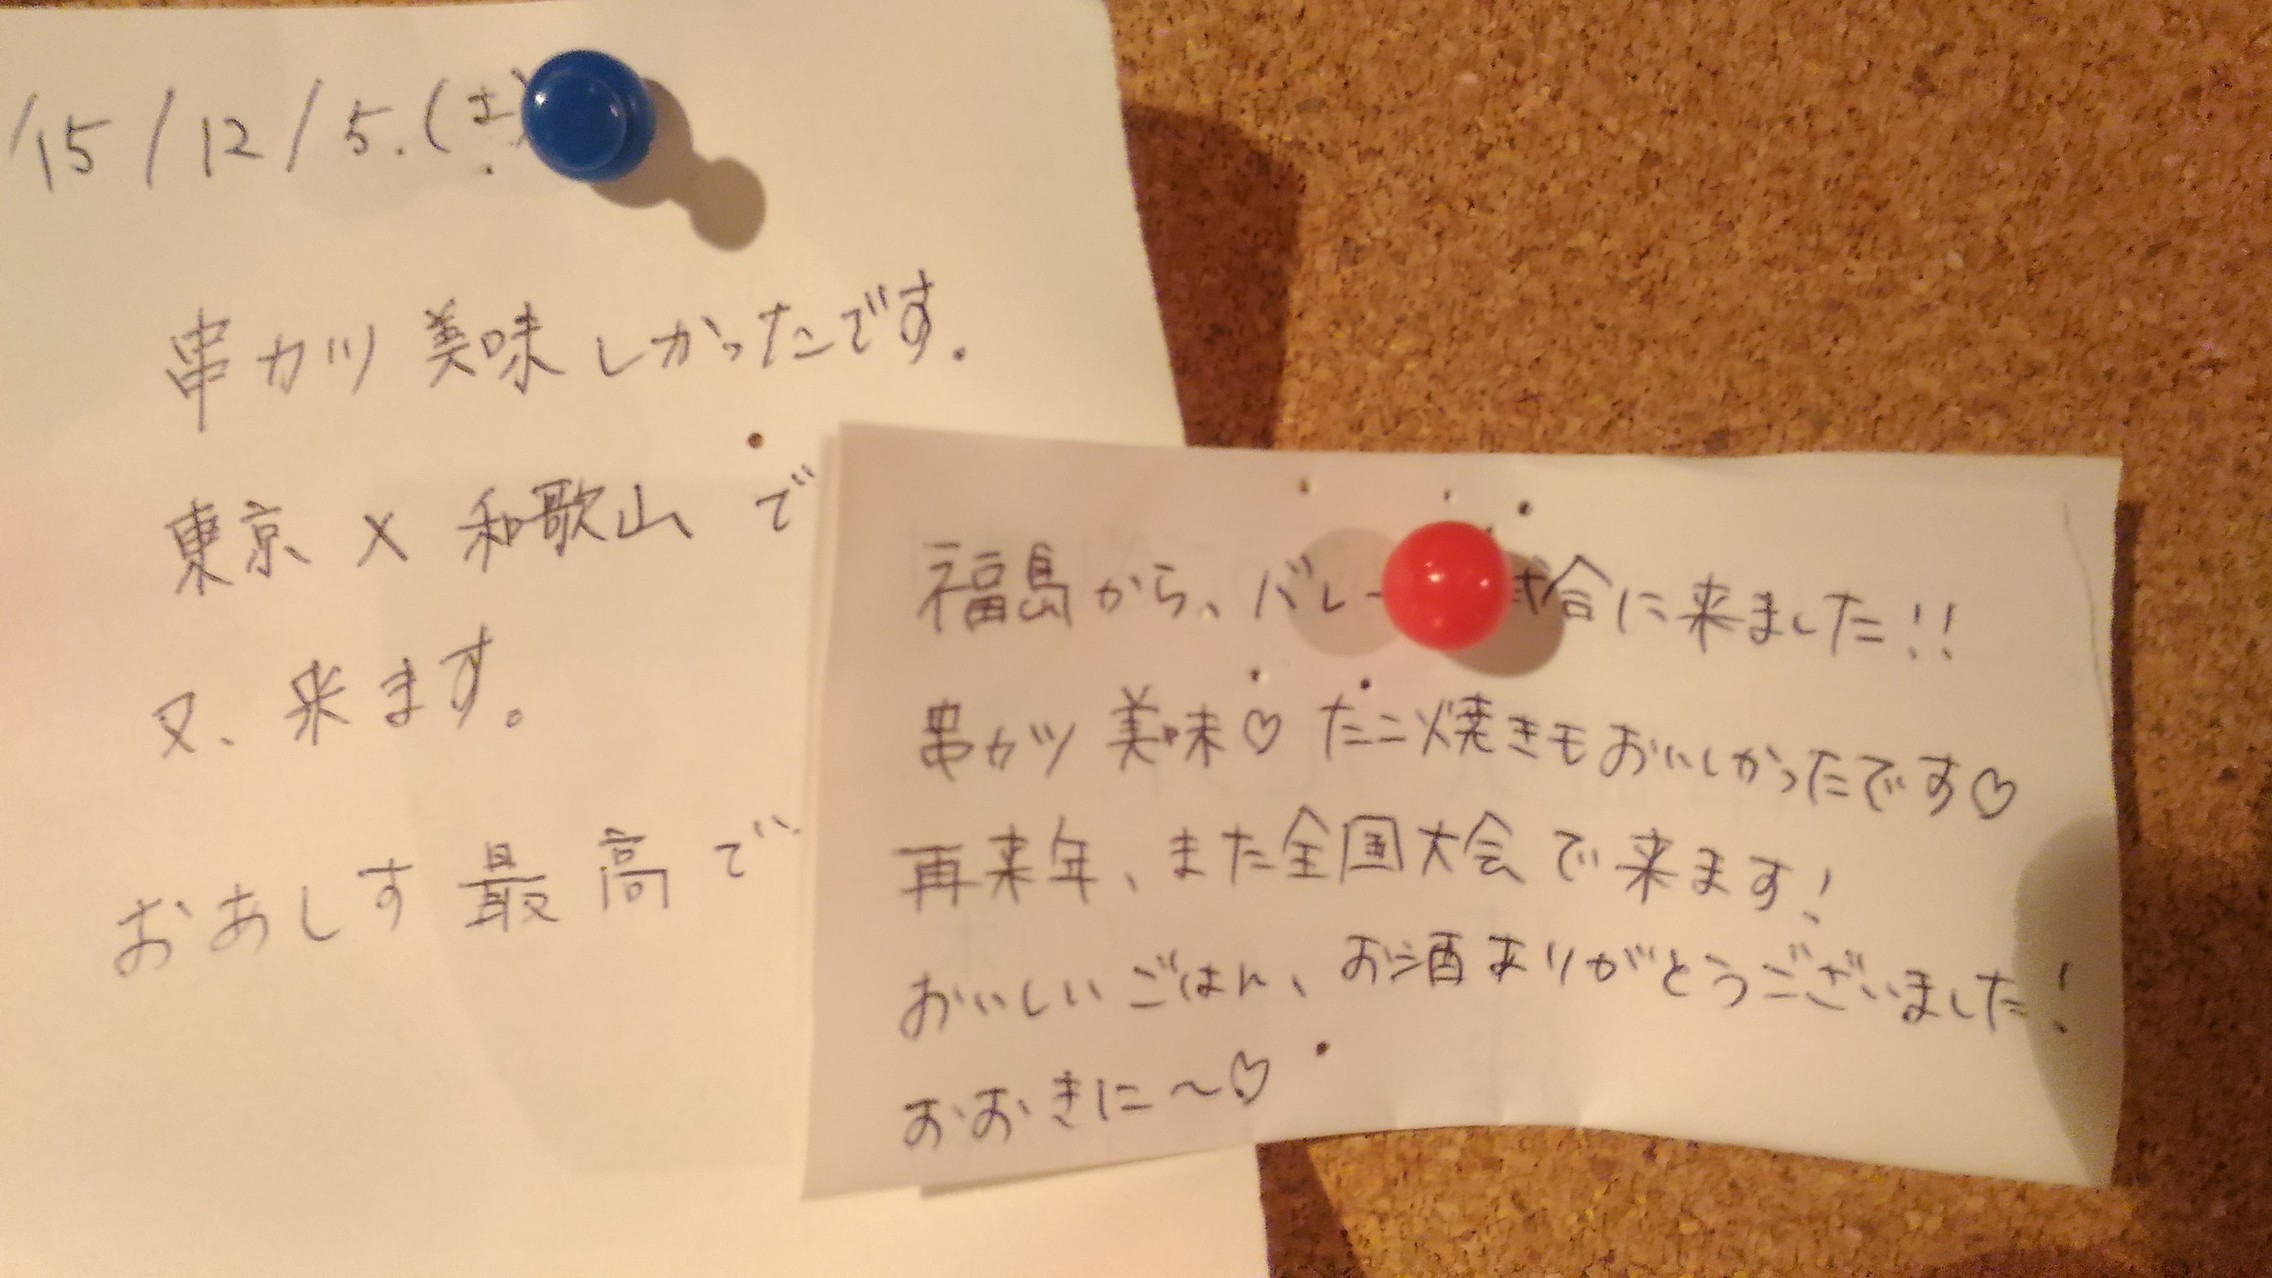 '15/12/5.(土)
串カツ美味しかったです。
東京×和歌山で
又、来ます。
おあしす最高で
福島から、バレー 試合に来ました!!
串カツ美味♡たこ焼きもおいしかったです♡
再来年、また全国大会で来ます!
おいしいごはん、お酒ありがとうございました!
おおきに〜♡